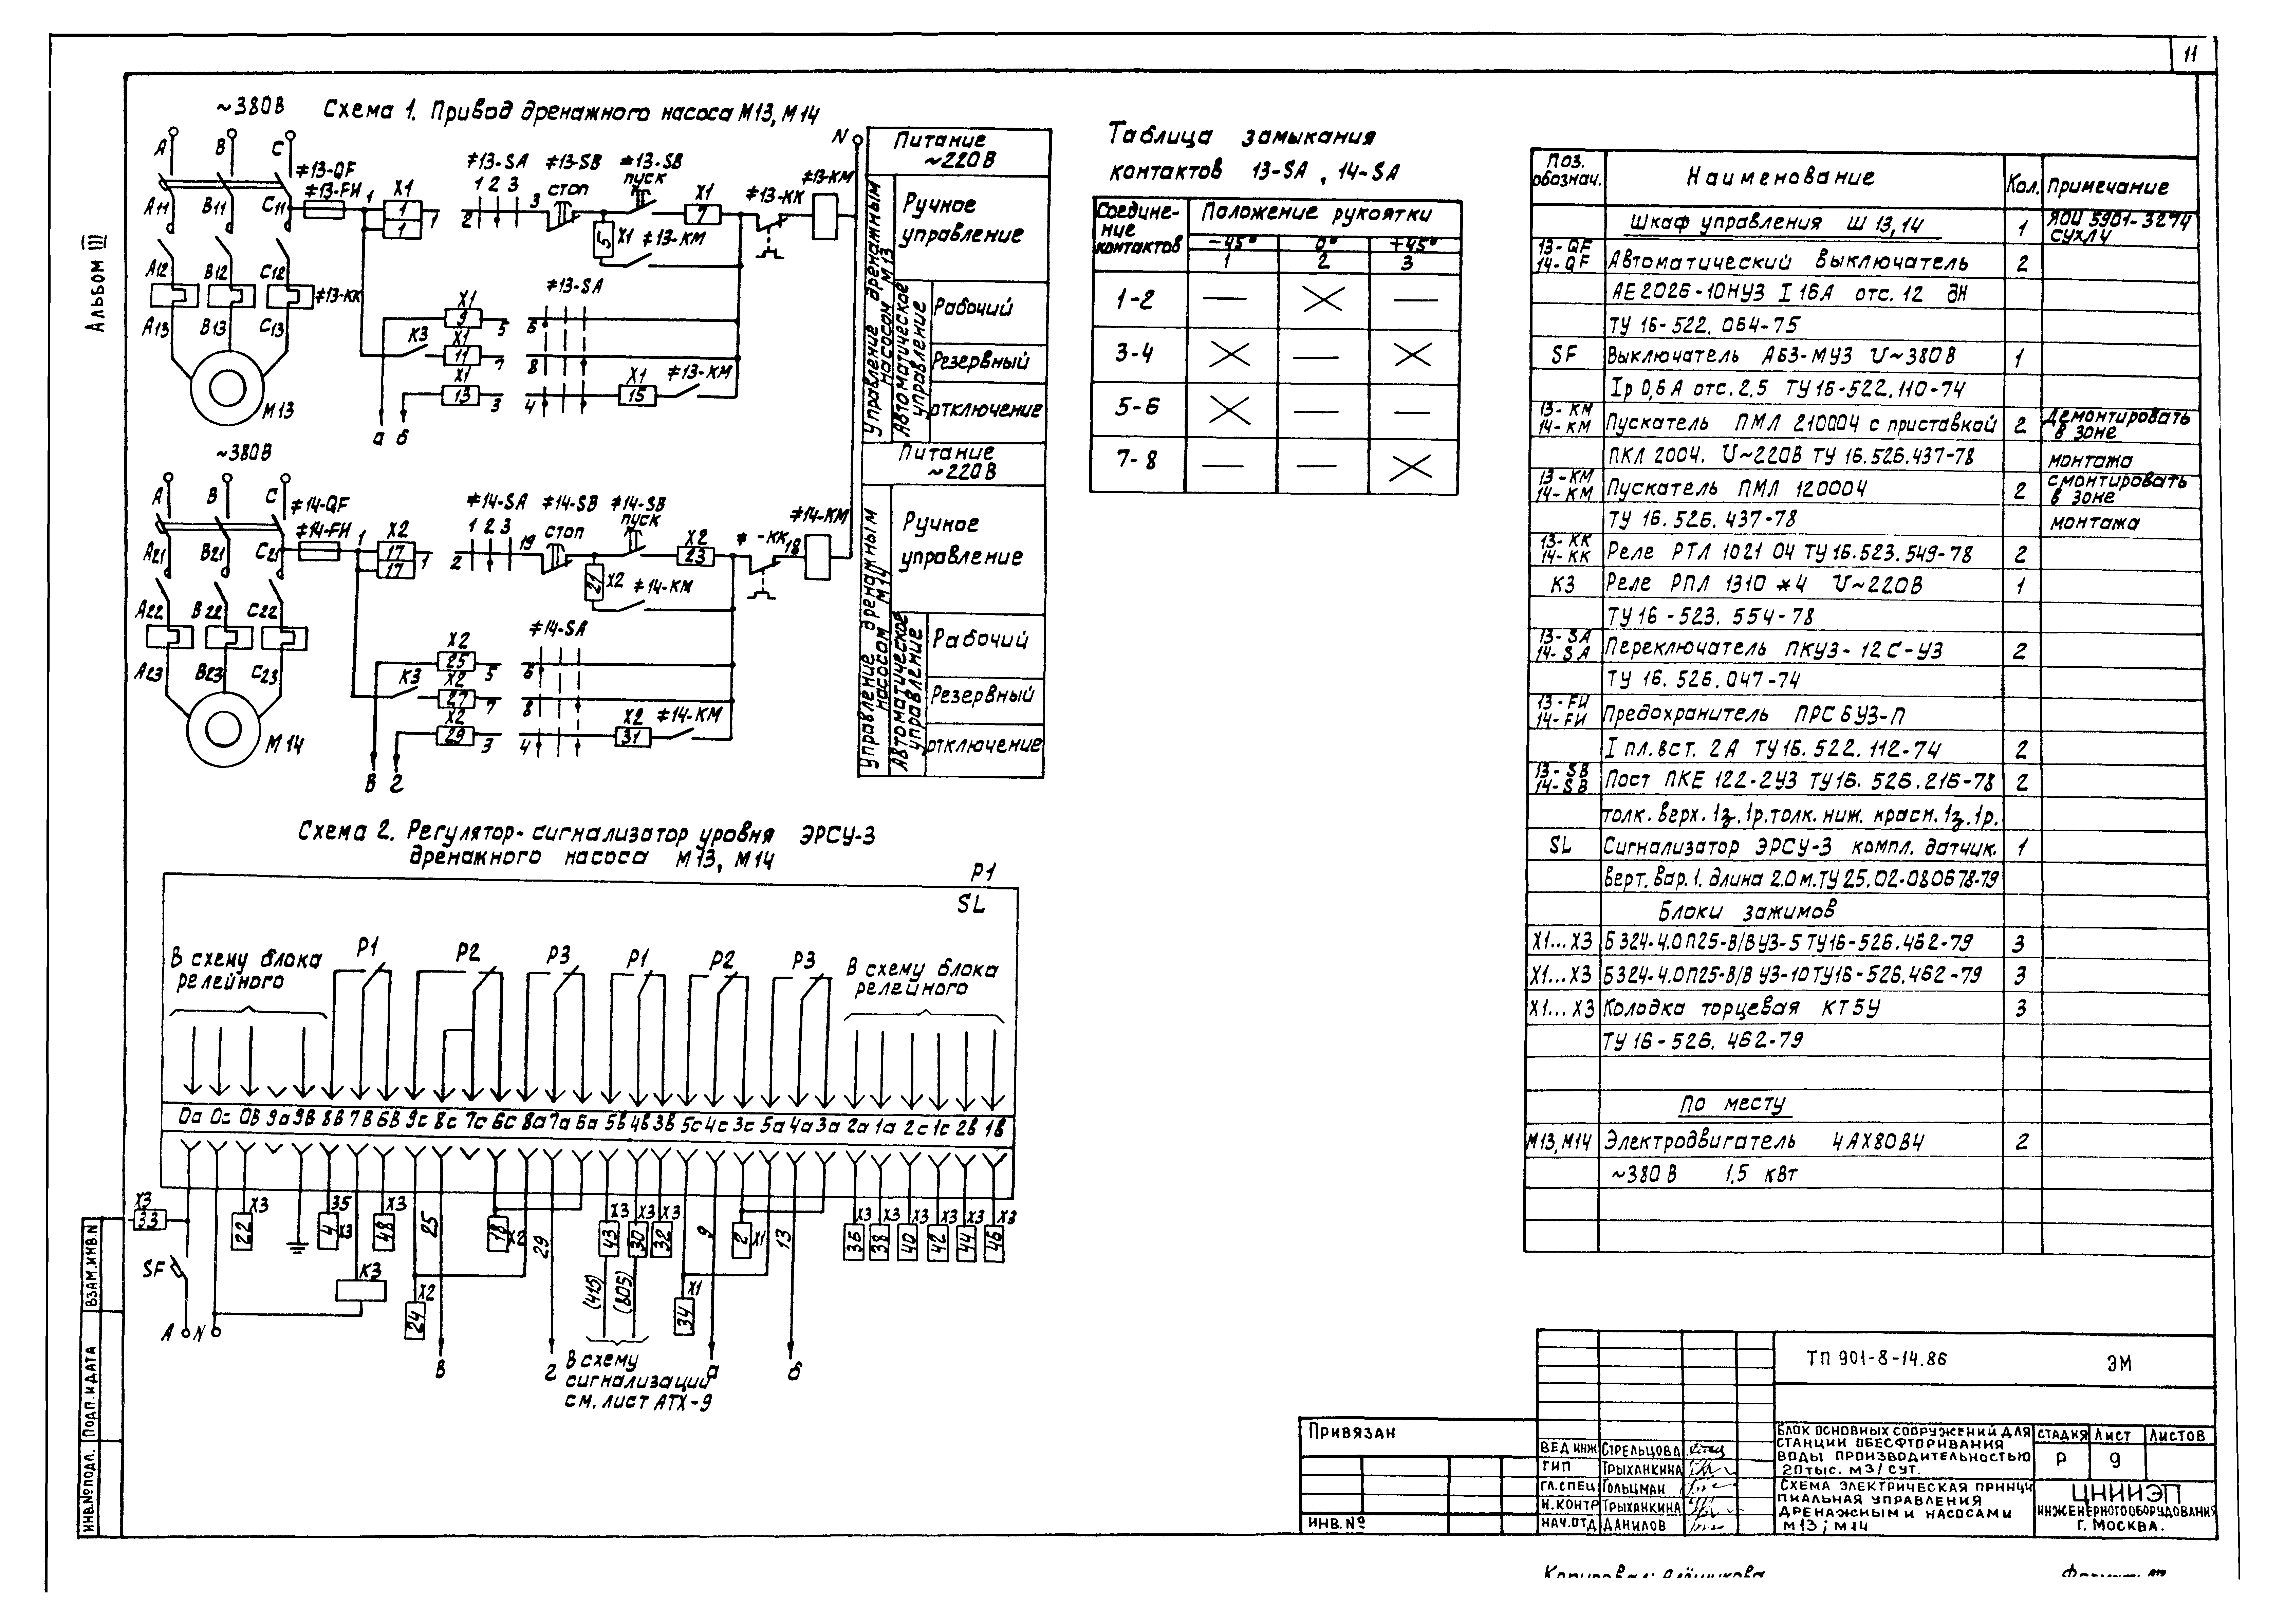 11
Альбом III
~380В
Схема 1. Привод дренажного насоса М13, М14
А
В
С
≠13-QF
≠13-FИ
А11
В11
С11
1
Х1
1
1
1
2
≠13-SA
1 2 3
3
≠13-SB
стоп
≠13-SB
пуск
Х1
7
5
Х1
≠13-КМ
≠13-КК
≠13-КМ
N
А12
В12
С12
≠13-КК
А13
В13
С13
М13
≠13-SA
Х1
9
5
6
К3
Х1
11
7
8
Х1
13
3
4
Х1
15
≠13-КМ
а
б
Питание
~220В
Управление дренажным
насосом М13
Ручное
управление
Автоматическое
управление
Рабочий
Резервный
отключение
~380В
А
В
С
≠14-QF
≠14-FИ
А21
В21
С21
1
Х2
17
17
1
2
≠14-SA
1 2 3
19
≠14-SB
стоп
≠14-SB
пуск
Х2
23
21
Х2
≠14-КМ
≠ -КК
18
≠14-КМ
А22
В22
С22
А23
В23
С23
М14
≠14-SA
Х2
25
5
6
К3
Х2
27
7
8
Х2
29
3
4
Х2
31
≠14-КМ
В
г
Питание
~220В
Управление дренажным
насосом М14
Ручное
управление
Автоматическое
управление
Рабочий
Резервный
отключение
Таблица замыкания
контактов 13-SA, 14-SA
Соедине-
ние
контактов
Положение рукоятки
-45° 0° +45°
1 2 3
1-2
3-4
5-6
7-8
Схема 2. Регулятор-сигнализатор уровня ЭРСУ-3
дренажного насоса М13, М14
Р1
SL
В схему блока
релейного
Р1
Р2
Р3
Р1
Р2
Р3
В схему блока
релейного
0а 0с 0В 9а 9В 8В 7В 6В 9с 8с 7с 6с 8а 7а 6а 5В 4В 3В 5с 4с 3с 5а 4а 3а 2а 1а 2с 1с 2В 1В
Х3
33
Х3
22
35
4
Х3
Х3
48
25
18
Х2
29
Х3
43
Х3
30
Х3
32
9
2
Х1
13
Х3
36
Х3
38
Х3
40
Х3
42
Х3
44
Х3
46
SF
К3
Х2
24
(415)
(805)
Х1
34
А
N
В
г
В схему
сигнализаций
см. лист АТХ-9
а
б
Поз.
обознач.
Наименование
Кол.
Примечание
Шкаф управления Ш 13,14
1
ЯОИ 5901-3274
СУХЛ4
13-QF
14-QF
Автоматический выключатель
2
АЕ2026-10НУ3 I 16А отс. 12 JН
ТУ 16-522. 064-75
SF
Выключатель АБ3-МУ3 U~380В
1
Iр 0,6А отс. 2,5 ТУ 16-522.110-74
13-КМ
14-КМ
Пускатель ПМЛ 210004 с приставкой
2
Демонтировать
в зоне
ПКЛ 2004. U~220В ТУ 16.526.437-78
монтажа
13-КМ
14-КМ
Пускатель ПМЛ 120004
2
смонтировать
в зоне
ТУ 16. 526. 437-78
монтажа
13-КК
14-КК
Реле РТЛ 1021 04 ТУ 16.523.549-78
2
К3
Реле РПЛ 1310 *4 U~220В
1
ТУ 16-523. 554-78
13-SA
14-SA
Переключатель ПКУ3-12С-У3
2
ТУ 16. 526. 047-74
13-FИ
14-FИ
Предохранитель ПРС 6У3-П
I пл. вст. 2А ТУ 16. 522. 112-74
2
13-SB
14-SB
Пост ПКЕ 122-2У3 ТУ 16. 526. 216-78
2
толк. верх. 1з. 1р. толк. ниж. красн. 1з. 1р.
SL
Сигнализатор ЭРСУ-3 компл. датчик.
1
верт. вар. 1. длина 2.0м. ТУ 25.02-080678-79
Блоки зажимов
Х1...Х3
Б324-4.0П25-В/ВУ3-5 ТУ16-526.462-79
3
Х1...Х3
Б324-4.0П25-В/В У3-10 ТУ16-526.462-79
3
Х1...Х3
Колодка торцевая КТ5У
3
ТУ 16-526. 462-79
По месту
М13, М14
Электродвигатель 4АХ80В4
2
~380В 1,5 кВт
ТП 901-8-14.86 ЭМ
Привязан
ИНВ. №
ВЕД ИНЖ СТРЕЛЬЦОВА
ГИП ТРЫХАНКИНА
ГЛ.СПЕЦ ГОЛЬЦМАН
Н.КОНТР ТРЫХАНКИНА
НАЧ.ОТД ДАНИЛОВ
БЛОК ОСНОВНЫХ СООРУЖЕНИЙ ДЛЯ
СТАНЦИИ ОБЕСФТОРИВАНИЯ
ВОДЫ ПРОИЗВОДИТЕЛЬНОСТЬЮ
20ТЫС. М3/СУТ.
СТАДИЯ ЛИСТ ЛИСТОВ
Р 9
СХЕМА ЭЛЕКТРИЧЕСКАЯ ПРИНЦИ
ПИАЛЬНАЯ УПРАВЛЕНИЯ
ДРЕНАЖНЫМИ НАСОСАМИ
М13; М14
ЦНИИЭП
ИНЖЕНЕРНОГО ОБОРУДОВАНИЯ
Г. МОСКВА.
ВЗАМ. ИНВ. N
ПОДП. И ДАТА
ИНВ. № ПОДЛ.
Копировал: